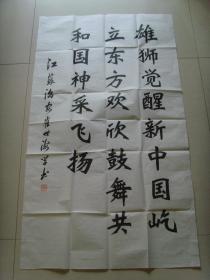 雄狮觉醒新中国屹
立东方欢欣鼓舞共
和国神采飞扬
江苏
书